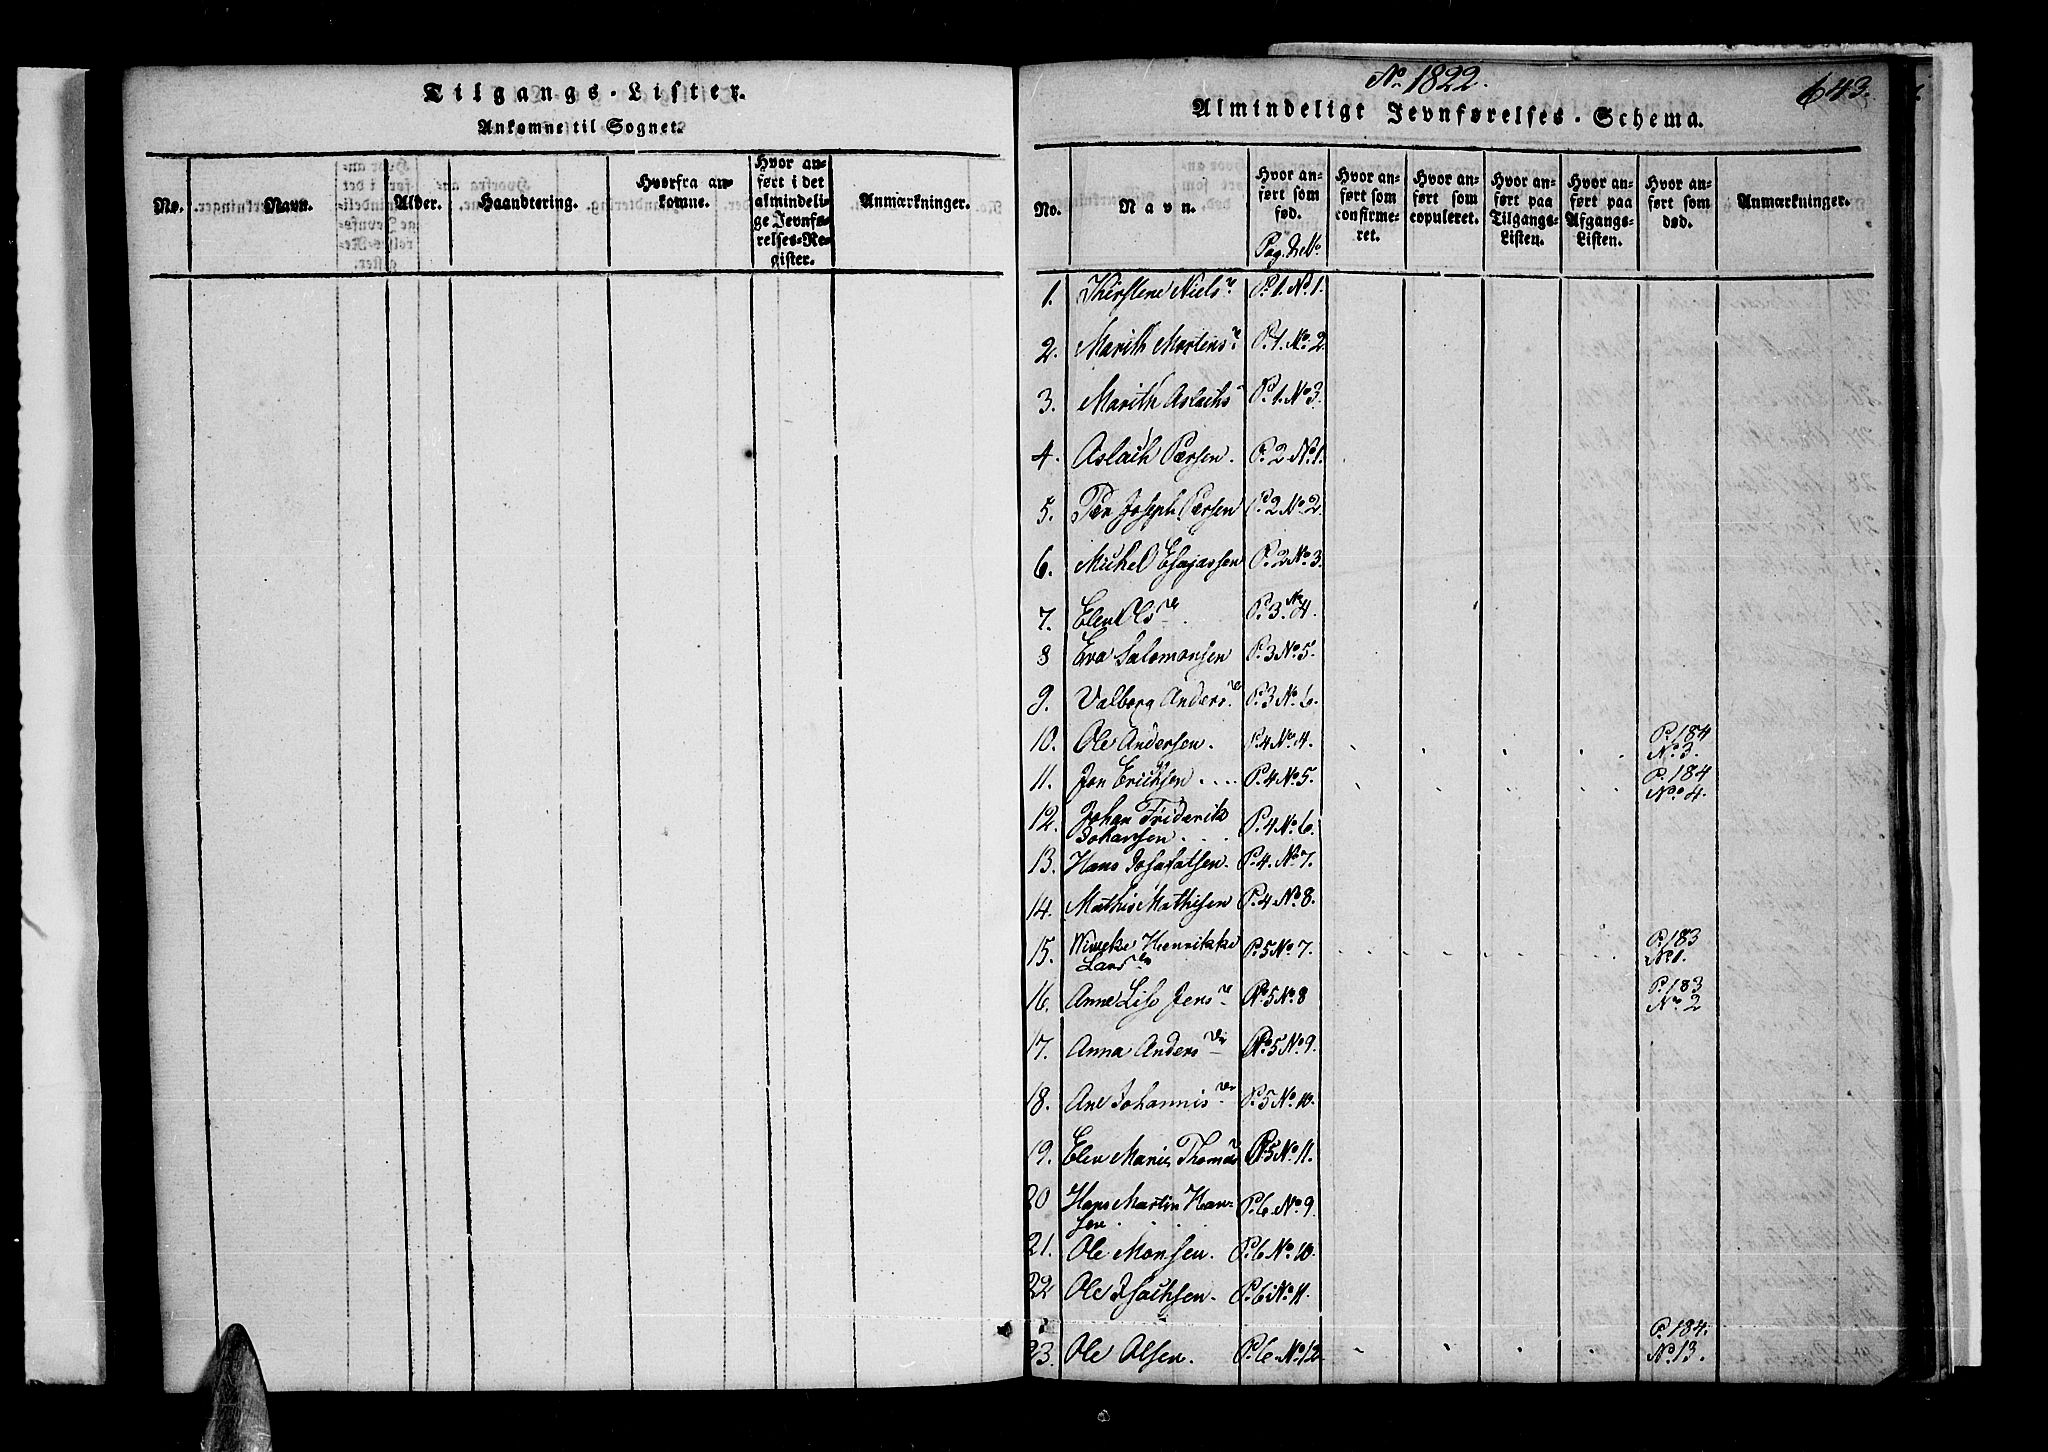 Tilgangs-Lister.
Ankomne til Sognet.
No.
Navn.
Alder.
Haandtering.
Hvorfra an-
komne.
Hvor an-
ført i det
almindeli-
ge Jevnfø-
relses-Re-
gister.
Anmærkninger.
No. 1822.
643.
Almindeligt Jevnførelses-Schema.
No.
Navn.
Hvor an-
ført som
fød.
Pag. & No.
Hvor an-
ført som
confirme-
ret.
Hvor an-
ført som
copuleret.
Hvor an-
ført paa
Tilgangs-
Listen.
Hvor an-
ført paa
Afgangs-
Listen.
Hvor an-
ført som
død.
Anmærkninger.
1. Kirstene Niels P. 1. No. 1.
2. Marith Mortens P. 1. No. 2
3. Marith Aslachs P. 1. No. 3.
4. Aslach Persen. P. 2 No. 1.
5. Per Joseph Persen P. 2 No. 2.
6. Michel Esajassen P. 2 No. 3.
7. Elen Ols P. 3. No. 4.
8 Eva Salomonsen P. 3 No. 5.
9. Valborg Anders P. 3 No. 6.
10. Ole Andersen. P. 4 No. 4. P. 184 No. 3.
11. Jon Erichsen .... P. 4 No. 5. P. 184 No. 4.
12. Johan Friderik
Johansen P. 4 No. 6.
13. Hans Josafatsen. P. 4. No. 7.
14. Mathis Mathisen P. 4 No. 8.
15. Wiweke Henrikke
Lars P. 5 No. 7. P. 183 No. 1.
16. Anne Lise Jens P. 5 No. 8 P. 183 No. 2
17. Anna Anders P. 5 No. 9.
18. Ane Johannis P. 5 No. 10.
19. Elen Marie Thomas P. 5 No. 11.
20 Hans Martin Han-
sen P. 6 No. 9
21. Ole Monsen. P. 6 No. 10.
22 Ole Isachsen. P. 6 No. 11.
23. Ole Olsen. P. 6 No. 12 P. 184. No. 13.